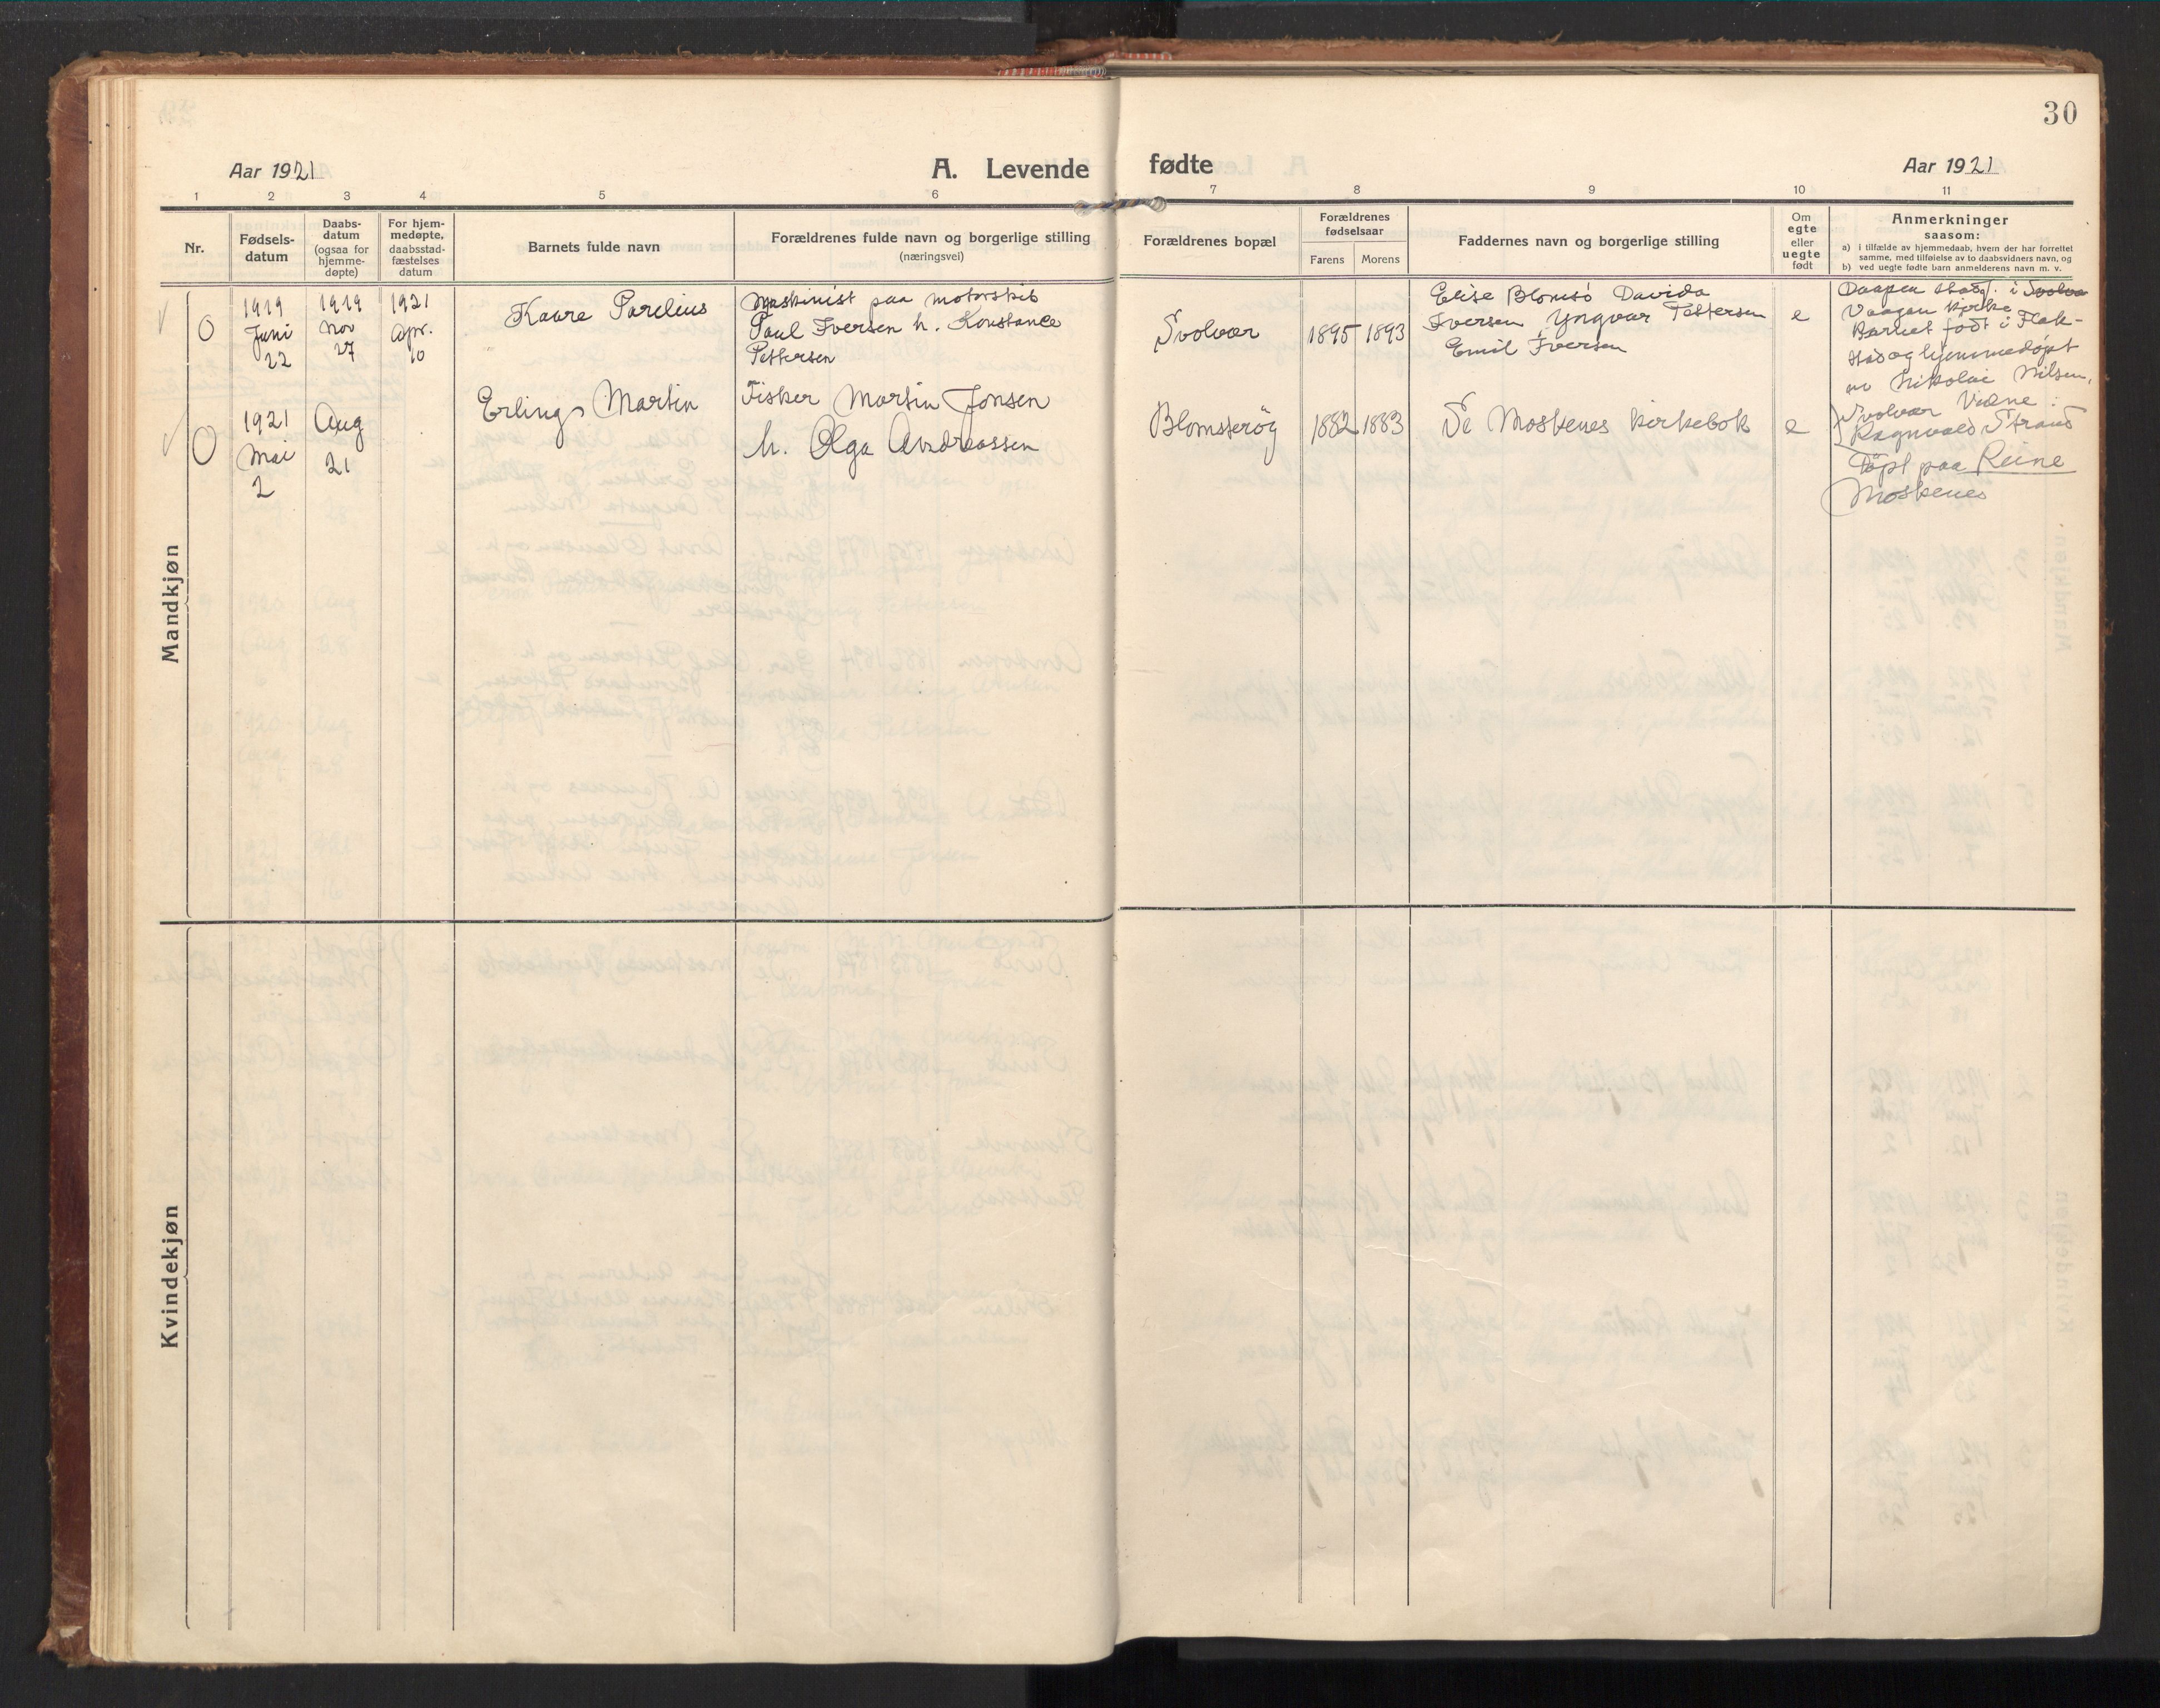 30
Aar 1921
A. Levende fødte
Aar 1921
1 2 3 4 5 6 7 8 9 10 11
Nr.
Fødsels-
datum
Daabs-
datum
(ogsaa for
hjemme-
døpte)
For hjem-
medøpte,
daabsstad-
fæstelses
datum
Barnets fulde navn
Forældrenes fulde navn og borgerlige stilling
(næringsvei)
Forældrenes bopæl
Forældrenes
fødselsaar
Farens Morens
Faddernes navn og borgerlige stilling
Om
egte
eller
uegte
født
Anmerkninger
saasom:
a) i tilfælde av hjemmedaab, hvem der har forrettet
samme, med tilføielse av to daabsvidners navn, og
b) ved uegte fødte barn anmelderens navn m. v.
Mandkjøn
0
1919
Juni
22
1919
Nov
27
1921
Apr.
10
Kaare Parelius
Maskinist paa motorskib
Paul Iversen h. Konstance
Pettersen
Svolvær
1895 1893
Elise Blomsö Davida
Iversen Yngvar Pettersen
Emil Iversen
e
Daapen stadf. i Svolvæ
Vaagan Kirke
Barnet født i Flak-
stad og hjemmedøpt
av Nikolai Nilsen,
Svolvær Vidne:
Ragnvald Strand
0
1921
Mai
2
Aug
21
Erling Martin
Fisker Martin Jonsen
h. Olga Andreassen
1882 1883
Se Moskenes Kirkebok
e
Døpt paa Reine
Moskenes
Kvindekjøn